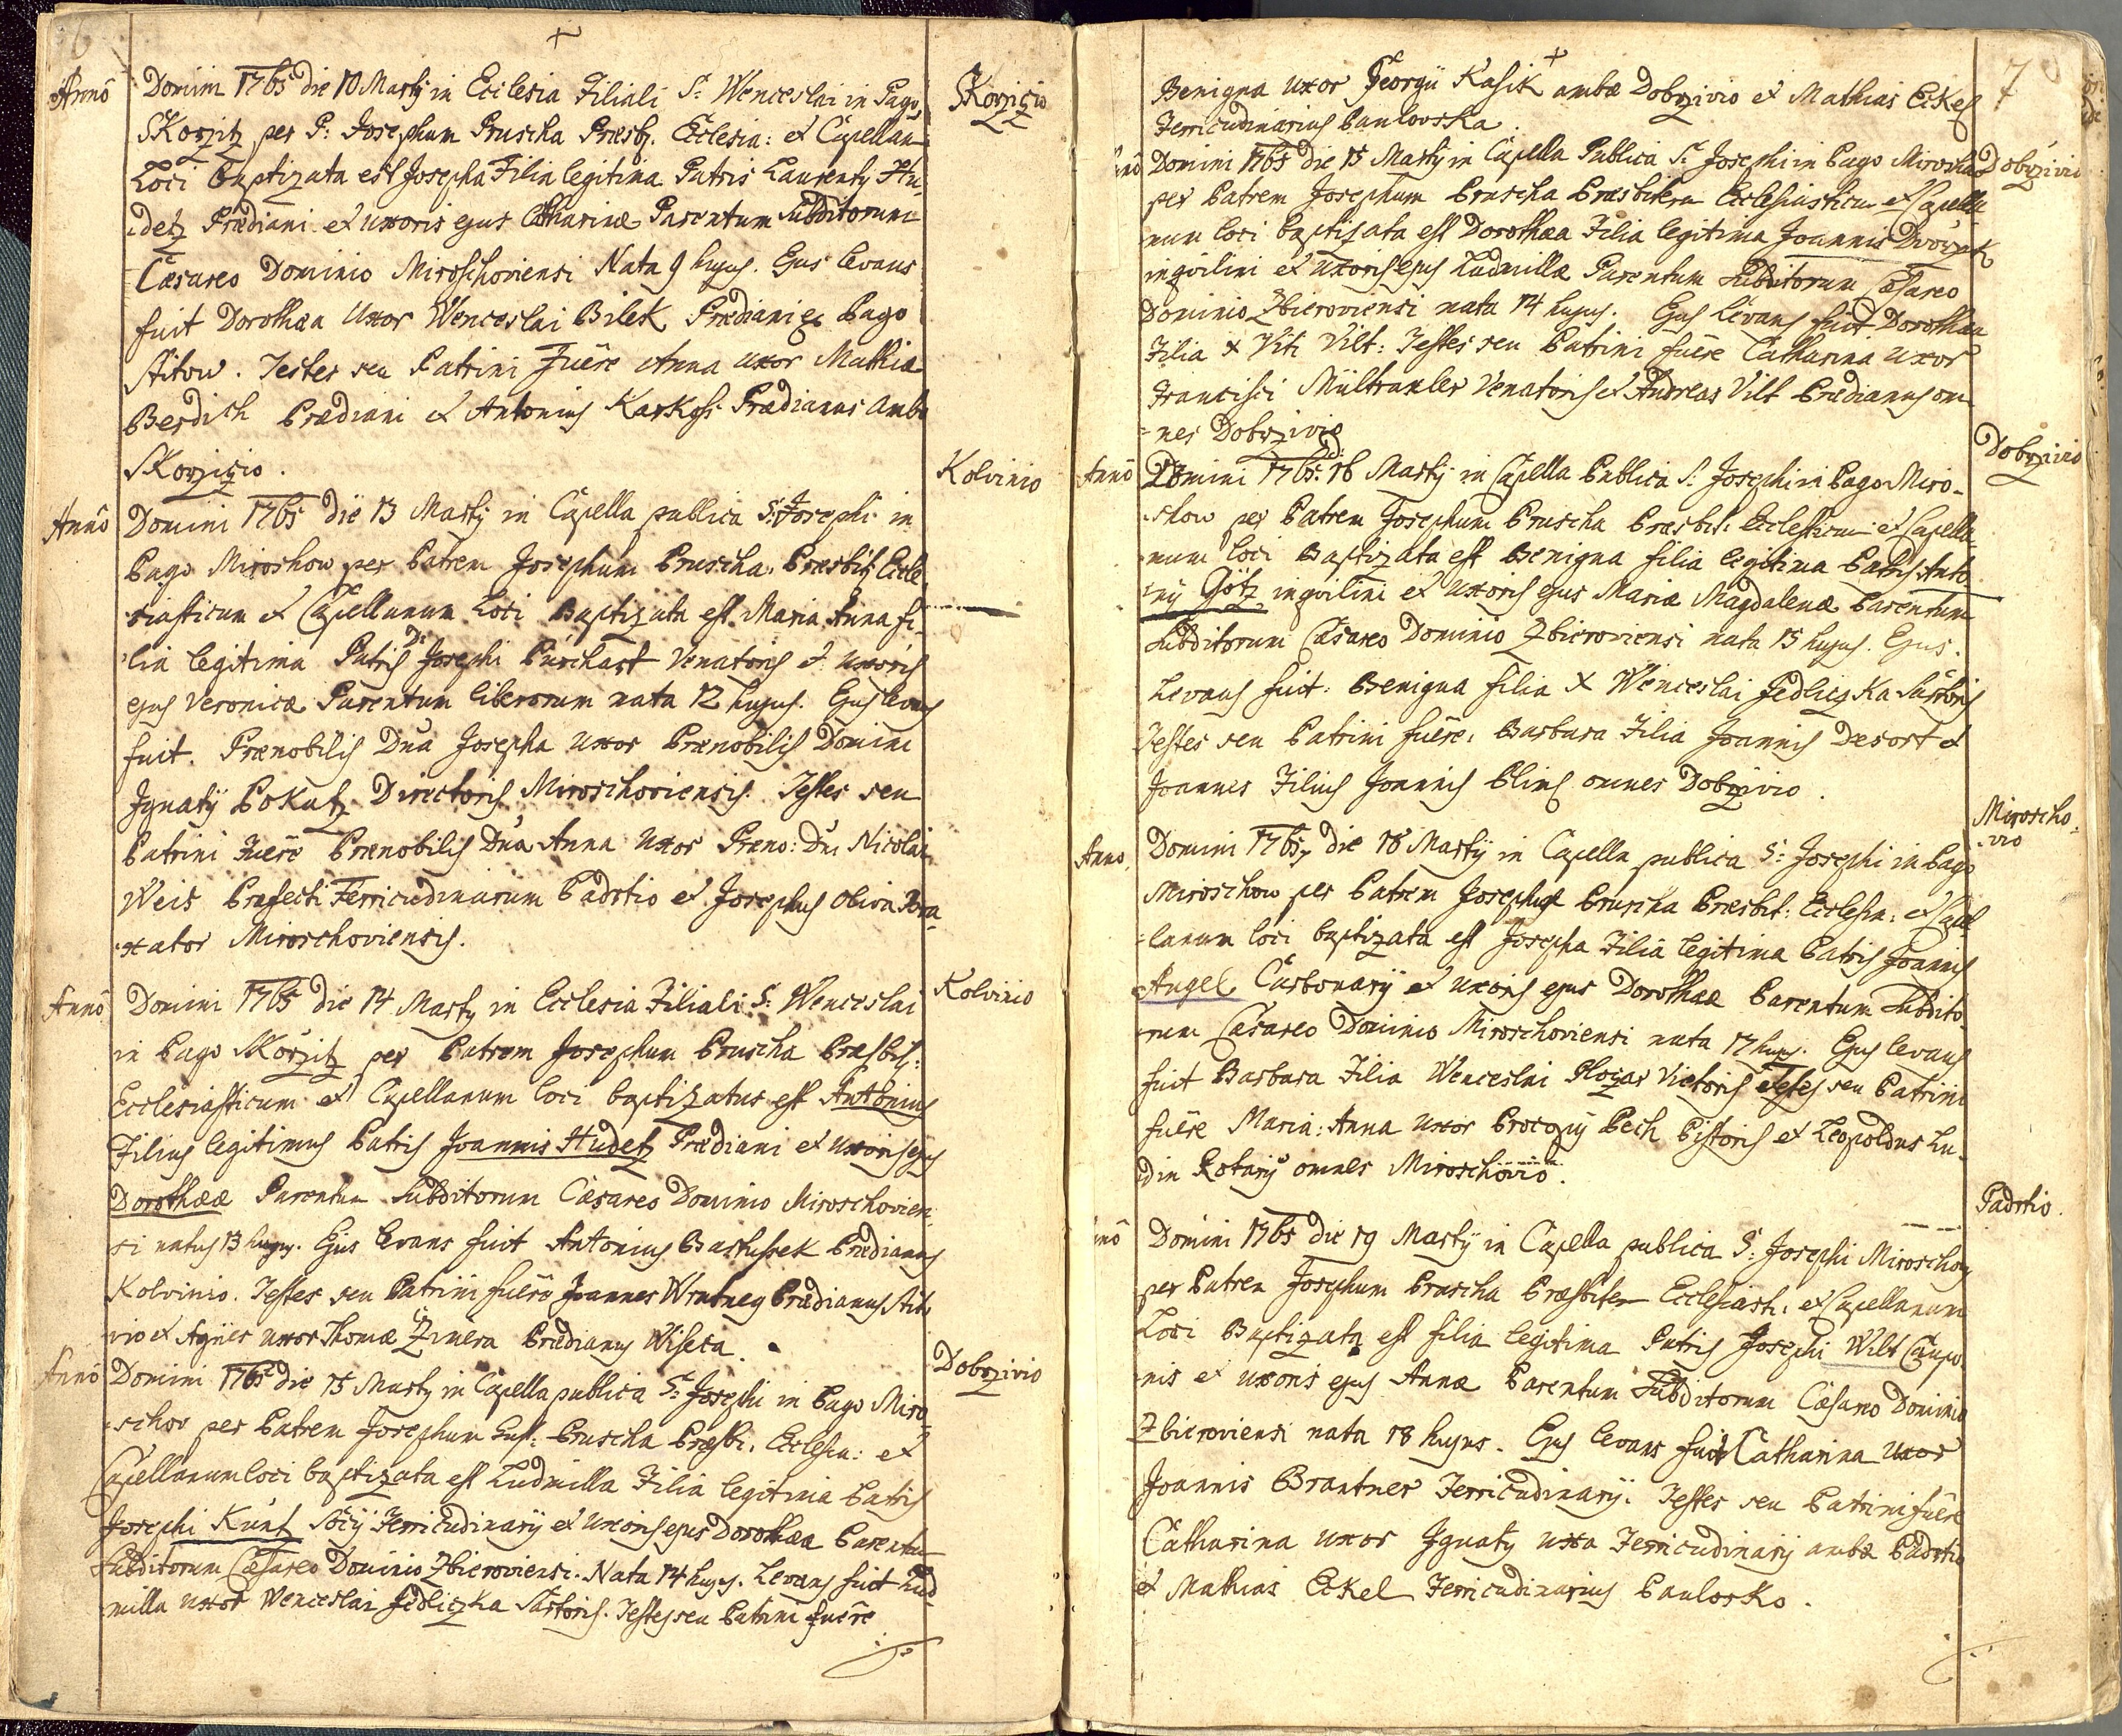 6
+
Anno Domini 1765 die 10 Martÿ in Ecclesia Filiali S: Wenceslai in Pago Skorzizio
Skorzitz per P: Josephum Pruscha Præsb. Ecclesia: et Capellan
Loci baptizata est Josepha Filia legitima Patris Laurenty Hu-
detz Prædiani et uxoris ejus Catharinæ Parentum Subditorum
Cæsareo Dominio Miroschoviensi Nata 9 hujus. Ejus levans
fuit Dorothæa Uxor Wenceslai Bilek Prædiani ex Pago
Stitow. Testes seu Patrini Fuêre Anna uxor Mathiæ
Berdich Prædiani et Antonius Prædianus ambo
Skorzizio.
Kolvinio
Anno Domini 1765 die 13 Martÿ in Capella publica S: Josephi in
Pago Miroshow per Patrem Josephum Pruscha Præsbit Eccle
siasticum et Capellanum Loci Baptizata est Maria Anna fi-
lia legitima Patris Di Josephi Purchart Venatoris et uxoris
ejus Veronicæ Parentum liberorum nata 12 hujus. Ejus levans
fuit. Prænobilis Dna Josepha uxor Prænobilis Domini
Ignatÿ Pokutz Directoris Miroschoviensis. Testes seu
Patrini Fuêre Prænobilis Dna Anna Uxor Præno: Dni Nicolai
Weis Præfecti Ferricudinarum Padrtio et Josephus Oliva
xator Miroschoviensis.
Anno Domini 1765 die 14 Marty in Ecclesia Filiali S: Wenceslai Kolvinio
in Pago Skorzitz per Patrem Josephum Pruscha Præsbit:
Ecclesiasticum et Capellanum loci baptizatus est Antonius
Filius legitimus Patris Joannis Hudetz Prædiani et uxoris ejus
Dorothææ Parentum Subditorum Cæsareo Dominio Miroschovien-
si natus 13 hujus. Ejus levans fuit Antonius Bartussek Prædianus
Kolvinio. Testes seu Patrini fuêre Joannes Wrutney Prædianus Stit
vio et Agnes uxor Thomæ Zmera Prædianus Wiseca.
Anno Domini 1765 die 15 Marty in Capella publica S: Josephi in Pago Miro- Dobrzivio
schov per Patrem Josephum Pruscha Præsbi. Ecclesia: et
Capellanum loci baptizata est Ludmilla Filia legitima Patris
Josephi Kunt Socÿ Ferricudinarÿ et uxoris ejus Dorothæa Parentu
Subditorum Cæsareo Dominio Zbieroviensi. Nata 14 hujus. Levans fuit Lud
milla uxor Wenceslai Jedliczka Sartoris. Testes seu Patrini fuêre
7
+
Benigna uxor Georgii Kasik ambæ Dobrzivio et Mathias Eckel
Ferricudinarius Paulovska.
Anno Domini 1765 die 15 Martÿ in Capella Publica S: Josephi in Pago Miroschov Dobrzivio
per Patrem Josephum Pruscha Præsbiterum Ecclesiasticum et Capella
num loci baptisata est Dorothæa Filia legitima Joannis Dvorzak
inqvilini et uxoris ejus Ludmillæ Parentum Subditorum Cæsareo
Dominio Zbieroviensi nata 14 hujus. Ejus Levans fuit Dorothæa
Filia + Viti Vilt: Testes seu Patrini fuêre Catharina uxor
Francisci Venatoris et Andreas Vilt Prædianus om-
nes Dobrzivio
Dobrzivio
Anno Domini 1765 di 16 Martÿ in Capella Publica S: Josephi in Pago Miro-
show per Patrem Josephum Pruscha Præsbit: et Capella
num loci Baptizata est Benigna filia legitima Patris Anto
nÿ Götz inqvilini et uxoris ejus Mariæ Magdalenæ Parentum
Subditorum Cæsareo Dominio Zbieroviensi nata 15 hujus. Ejus
Levans fuit: Benigna filia + Wenceslai Jedliczka Sartoris
Testes seu Patrini fuêre: Barbara Filia Joannis Desort et
Joannes Filius Joannis Plins omnes Dobrzivio.
Miroscho-
vio
Anno Domini 1765, die 18 Martÿ in Capella publica S: Josephi in Pago
Miroschow per Patrem Josephum Pruscha Præsbit: Ecclesia: et Capel-
lanum loci baptizata est Josepha Filia legitima Patris Joannis
Angel Carbonarÿ et uxoris ejus Dorothææ Parentum Subdito-
rum Cæsareo Dominio Miroschoviensi nata 17 hujus. Ejus levans
fuit Barbara Filia Wenceslai Plozar Vietoris Testes seu Patrini
fuêre Maria: Anna uxor Procopÿ Pech Pistoris et Leopoldus Lu-
din Rotarÿ omnes Miroschovio.
Padrtio.
Anno Domini 1765 die 19 Martÿ in Capella publica S: Josephi Miroschov
per Patrem Josephum Pruscha Præsbiter Ecclesiast: et Capellanum
Loci Baptizata est filia legitima Patris Josephi Wilt Caupo-
nis et uxoris ejus Annæ Parentum Subditorum Cæsareo Dominio
Zbieroviensi nata 18 hujus. Ejus levans fuit Catharina uxor
Joannis Brantner Ferricudinarÿ. Testes seu Patrini fuêre
Catharina uxor Ignaty uxa Ferricudinarÿ ambæ Padrtio
et Mathias Eckel Ferricudinarius Paulosko.